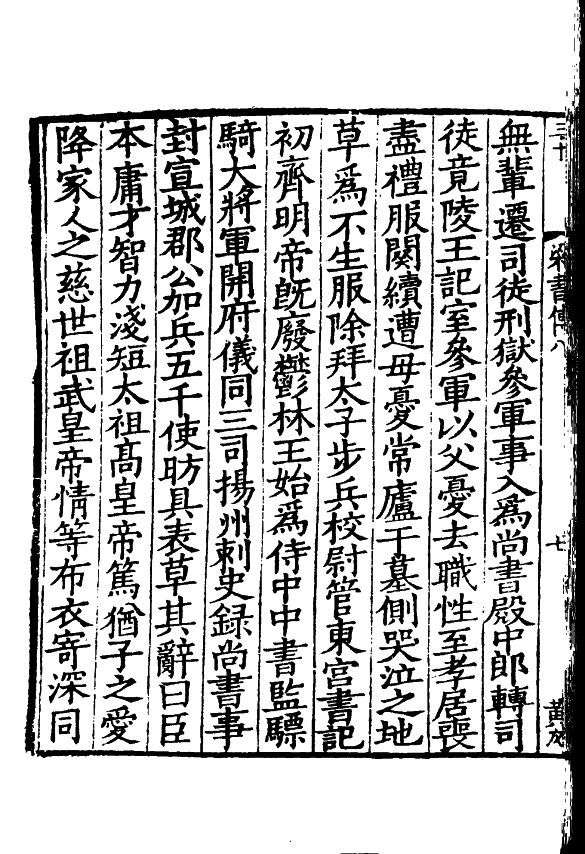 無輩遷司徒刑獄參軍事入爲尚書殿中郎轉司
徒竟陵王記室參軍以父憂去職性至孝居喪
盡禮服闋續遭母憂常廬于墓側哭泣之地
草爲不生服除拜太子步兵校尉管東宮書記
初齊明帝旣廢鬱林王始爲侍中中書監驃
騎大將軍開府儀同三司揚州刺史録尚書事
封宣城郡公加兵五千使昉具表草其辭曰臣
本庸才智力淺短太祖髙皇帝篤猶子之愛
降家人之慈世祖武皇帝情等布衣寄深同